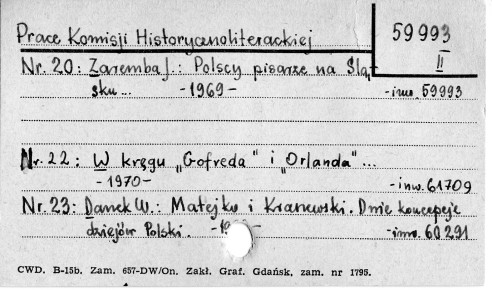 Prace Komisji Historycznoliterackiej
59993
II
Nr. 20: Zaremba J.: Polscy pisarze na Ślą-
sku... -1969- -inw. 59993
Nr. 22: W kręgu „Gofreda" i „Orlanda"...
-1970- -inw. 61709
Nr. 23: Danek W.: Matejko i Kraszewski. Dwie koncepcje
dziejów Polski. -inw. 60291
CWD. B-15b. Zam. 657-DW/On. Zakł. Graf. Gdańsk, zam. nr 1795.